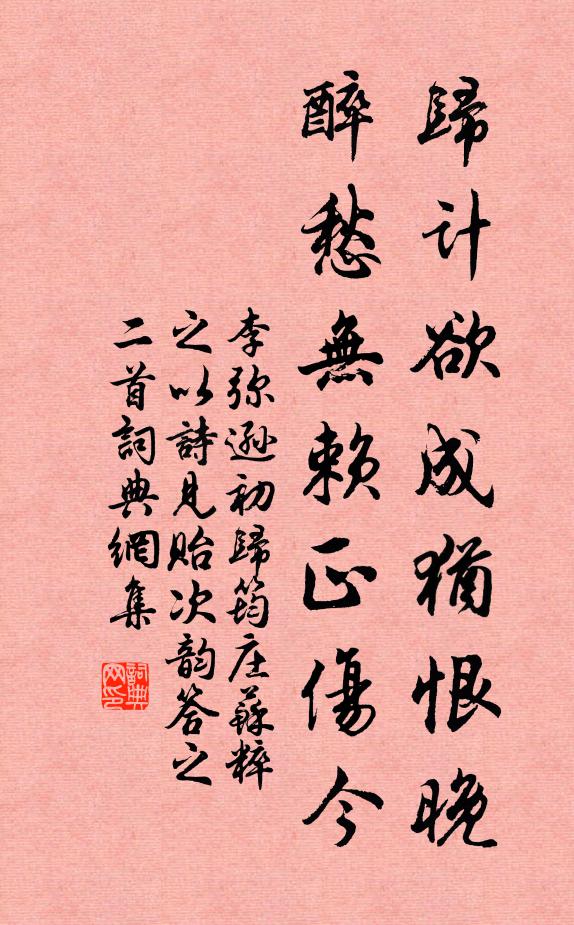 歸計欲成猶恨晚
醉愁無賴正傷今
李弥遜初歸筠庄蘇粹
之以詩見貽次韵答之
二首詞典網集
詞典网印